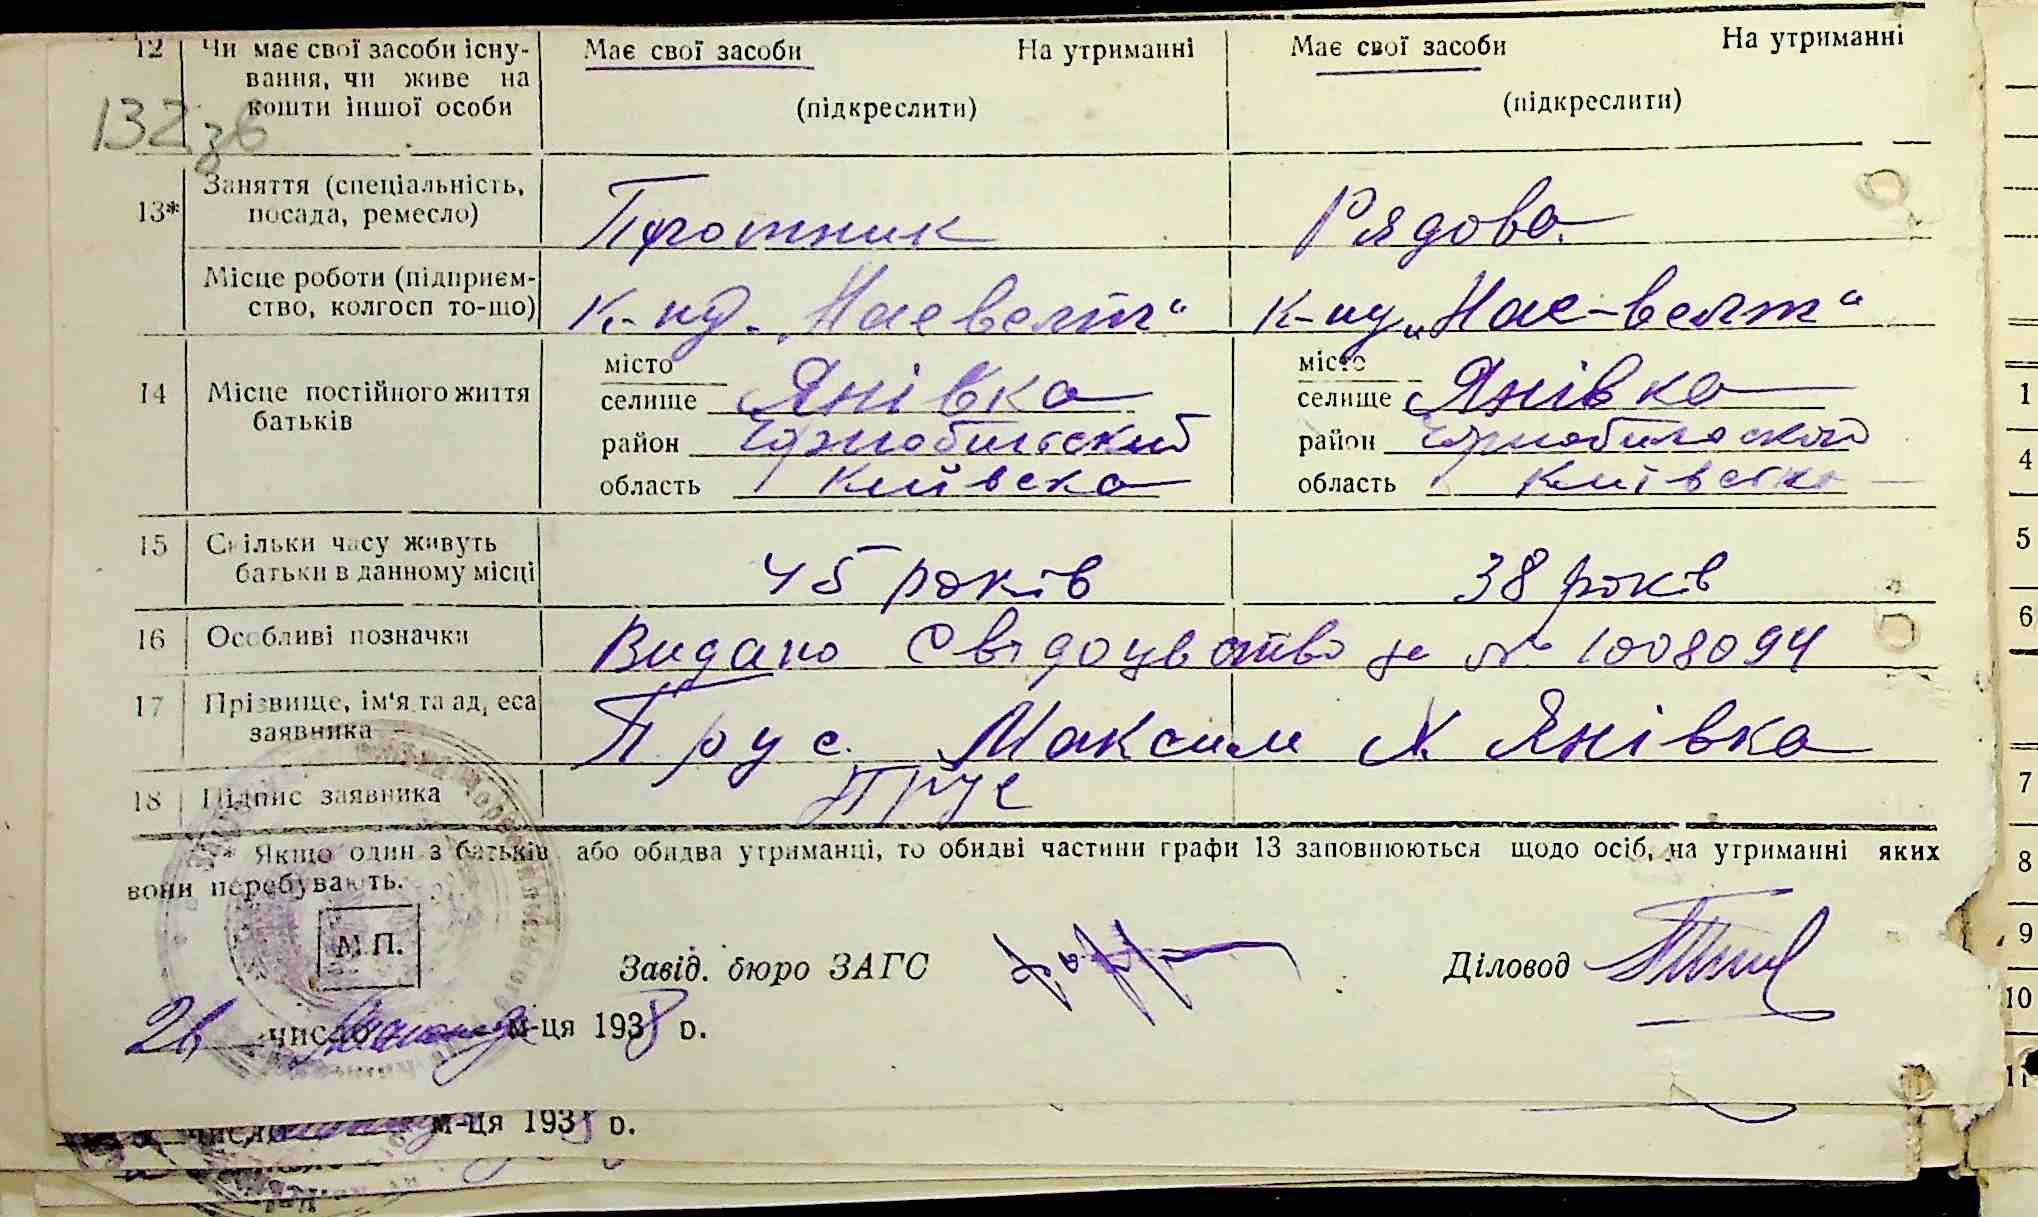 12 Чи має свої засоби існу- Має свої засоби На утриманні Має свої засоби На утриманні
вання, чи живе на
кошти іншої особи (підкреслити) (підкреслити)
132 зв
Заняття (спеціальність,
13* посада, ремесло) Плотник Рядова
Місце роботи (підприєм-
ство, колгосп то-що) К-пу
місто місто
14 Місце постійного життя селище Янівка селище Янівка
батьків район Чорнобильский район
область Київска область Київська
15 Скільки часу живуть
батьки в данному місці 45 років 38 років
16 Особливі позначки Видано Свідоцвство за № 1008094
17 Прізвище, ім'я та адреса
заявника Прус Максим Х Янівка
18 Підпис заявника Прус
* Якщо один з батьків або обидва утриманці, то обидві частини графи 13 заповнюються щодо осіб, на утриманні яких
вони перебувають.
М.П.
Завід. бюро ЗАГС Діловод
26 число м-ця 1938 р.
число м-ця 193 р.
1
4
5
6
7
8
9
10
11